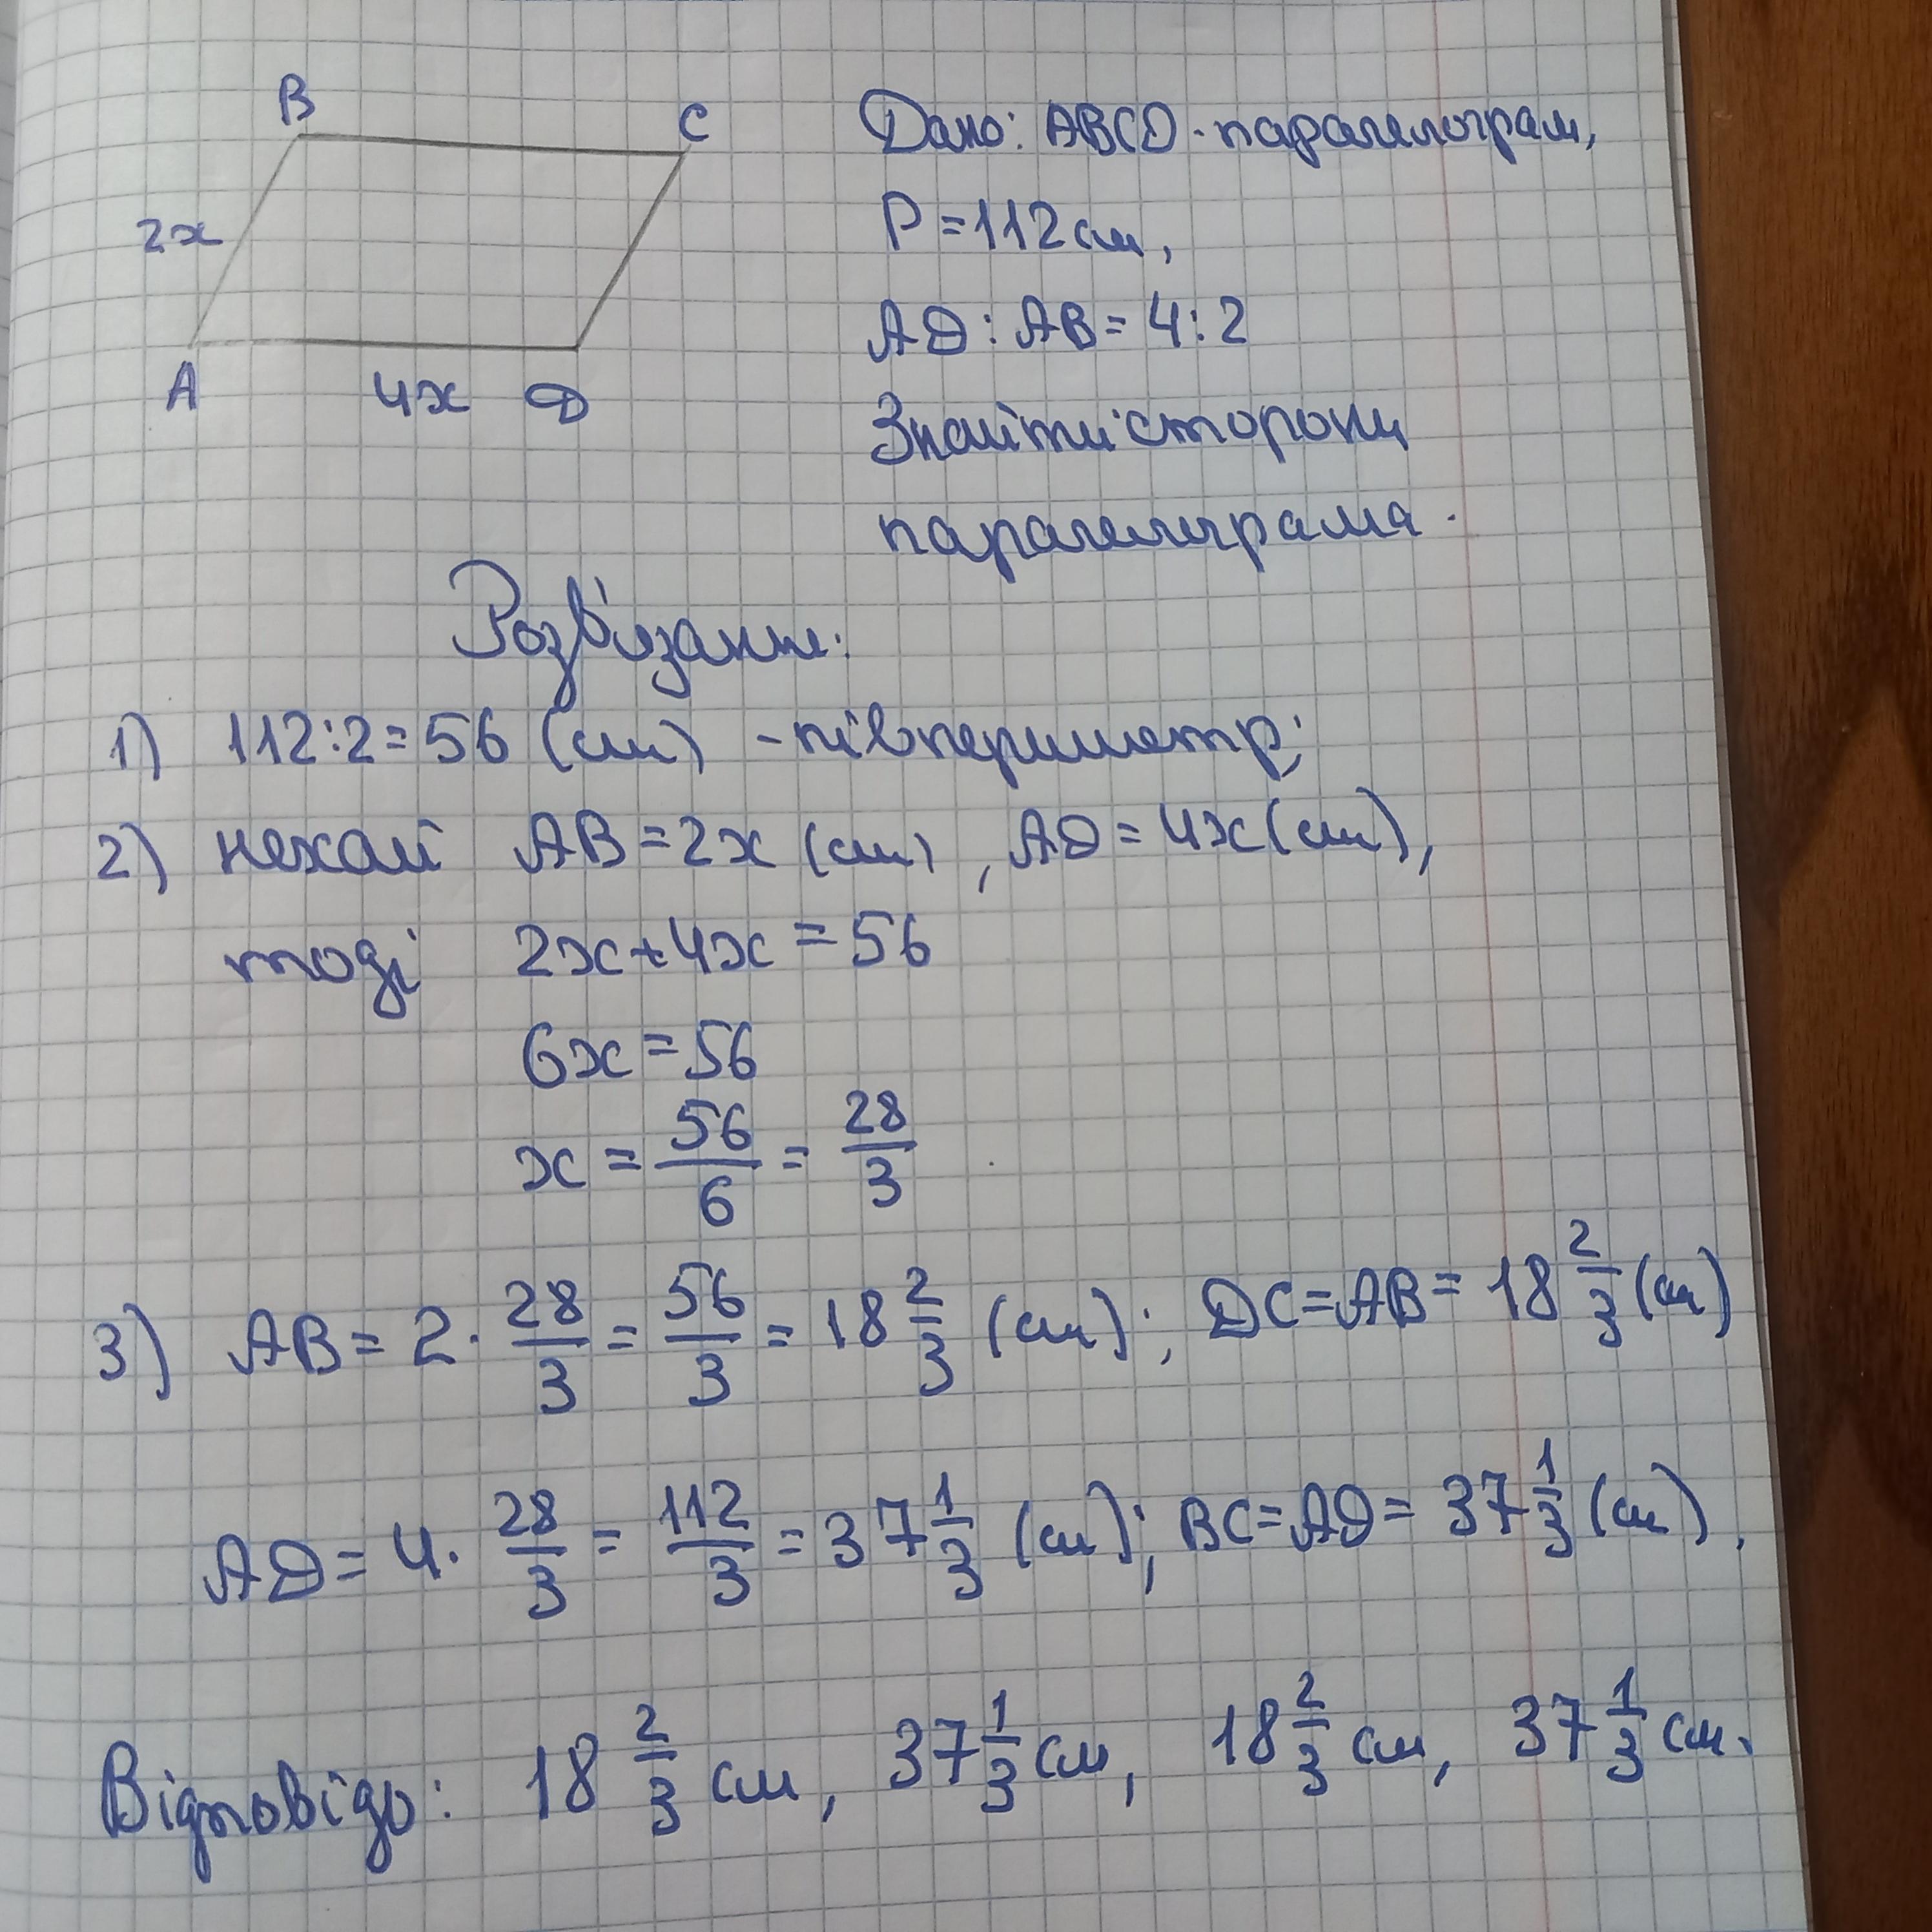 B
C
2x
A
4x
D
Дано: ABCD - паралелограм,
P = 112 см,
AD : AB = 4 : 2
Знайти: сторони
паралелограма.
Розв'язання:
1) 112 : 2 = 56 (см) - півпериметр;
2) нехай AB = 2x (см), AD = 4x (см),
тоді 2x + 4x = 56
6x = 56
x = 56/6 = 28/3
3) AB = 2 · 28/3 = 56/3 = 18 2/3 (см); DC = AB = 18 2/3 (см)
AD = 4 · 28/3 = 112/3 = 37 1/3 (см); BC = AD = 37 1/3 (см).
Відповідь: 18 2/3 см, 37 1/3 см, 18 2/3 см, 37 1/3 см.